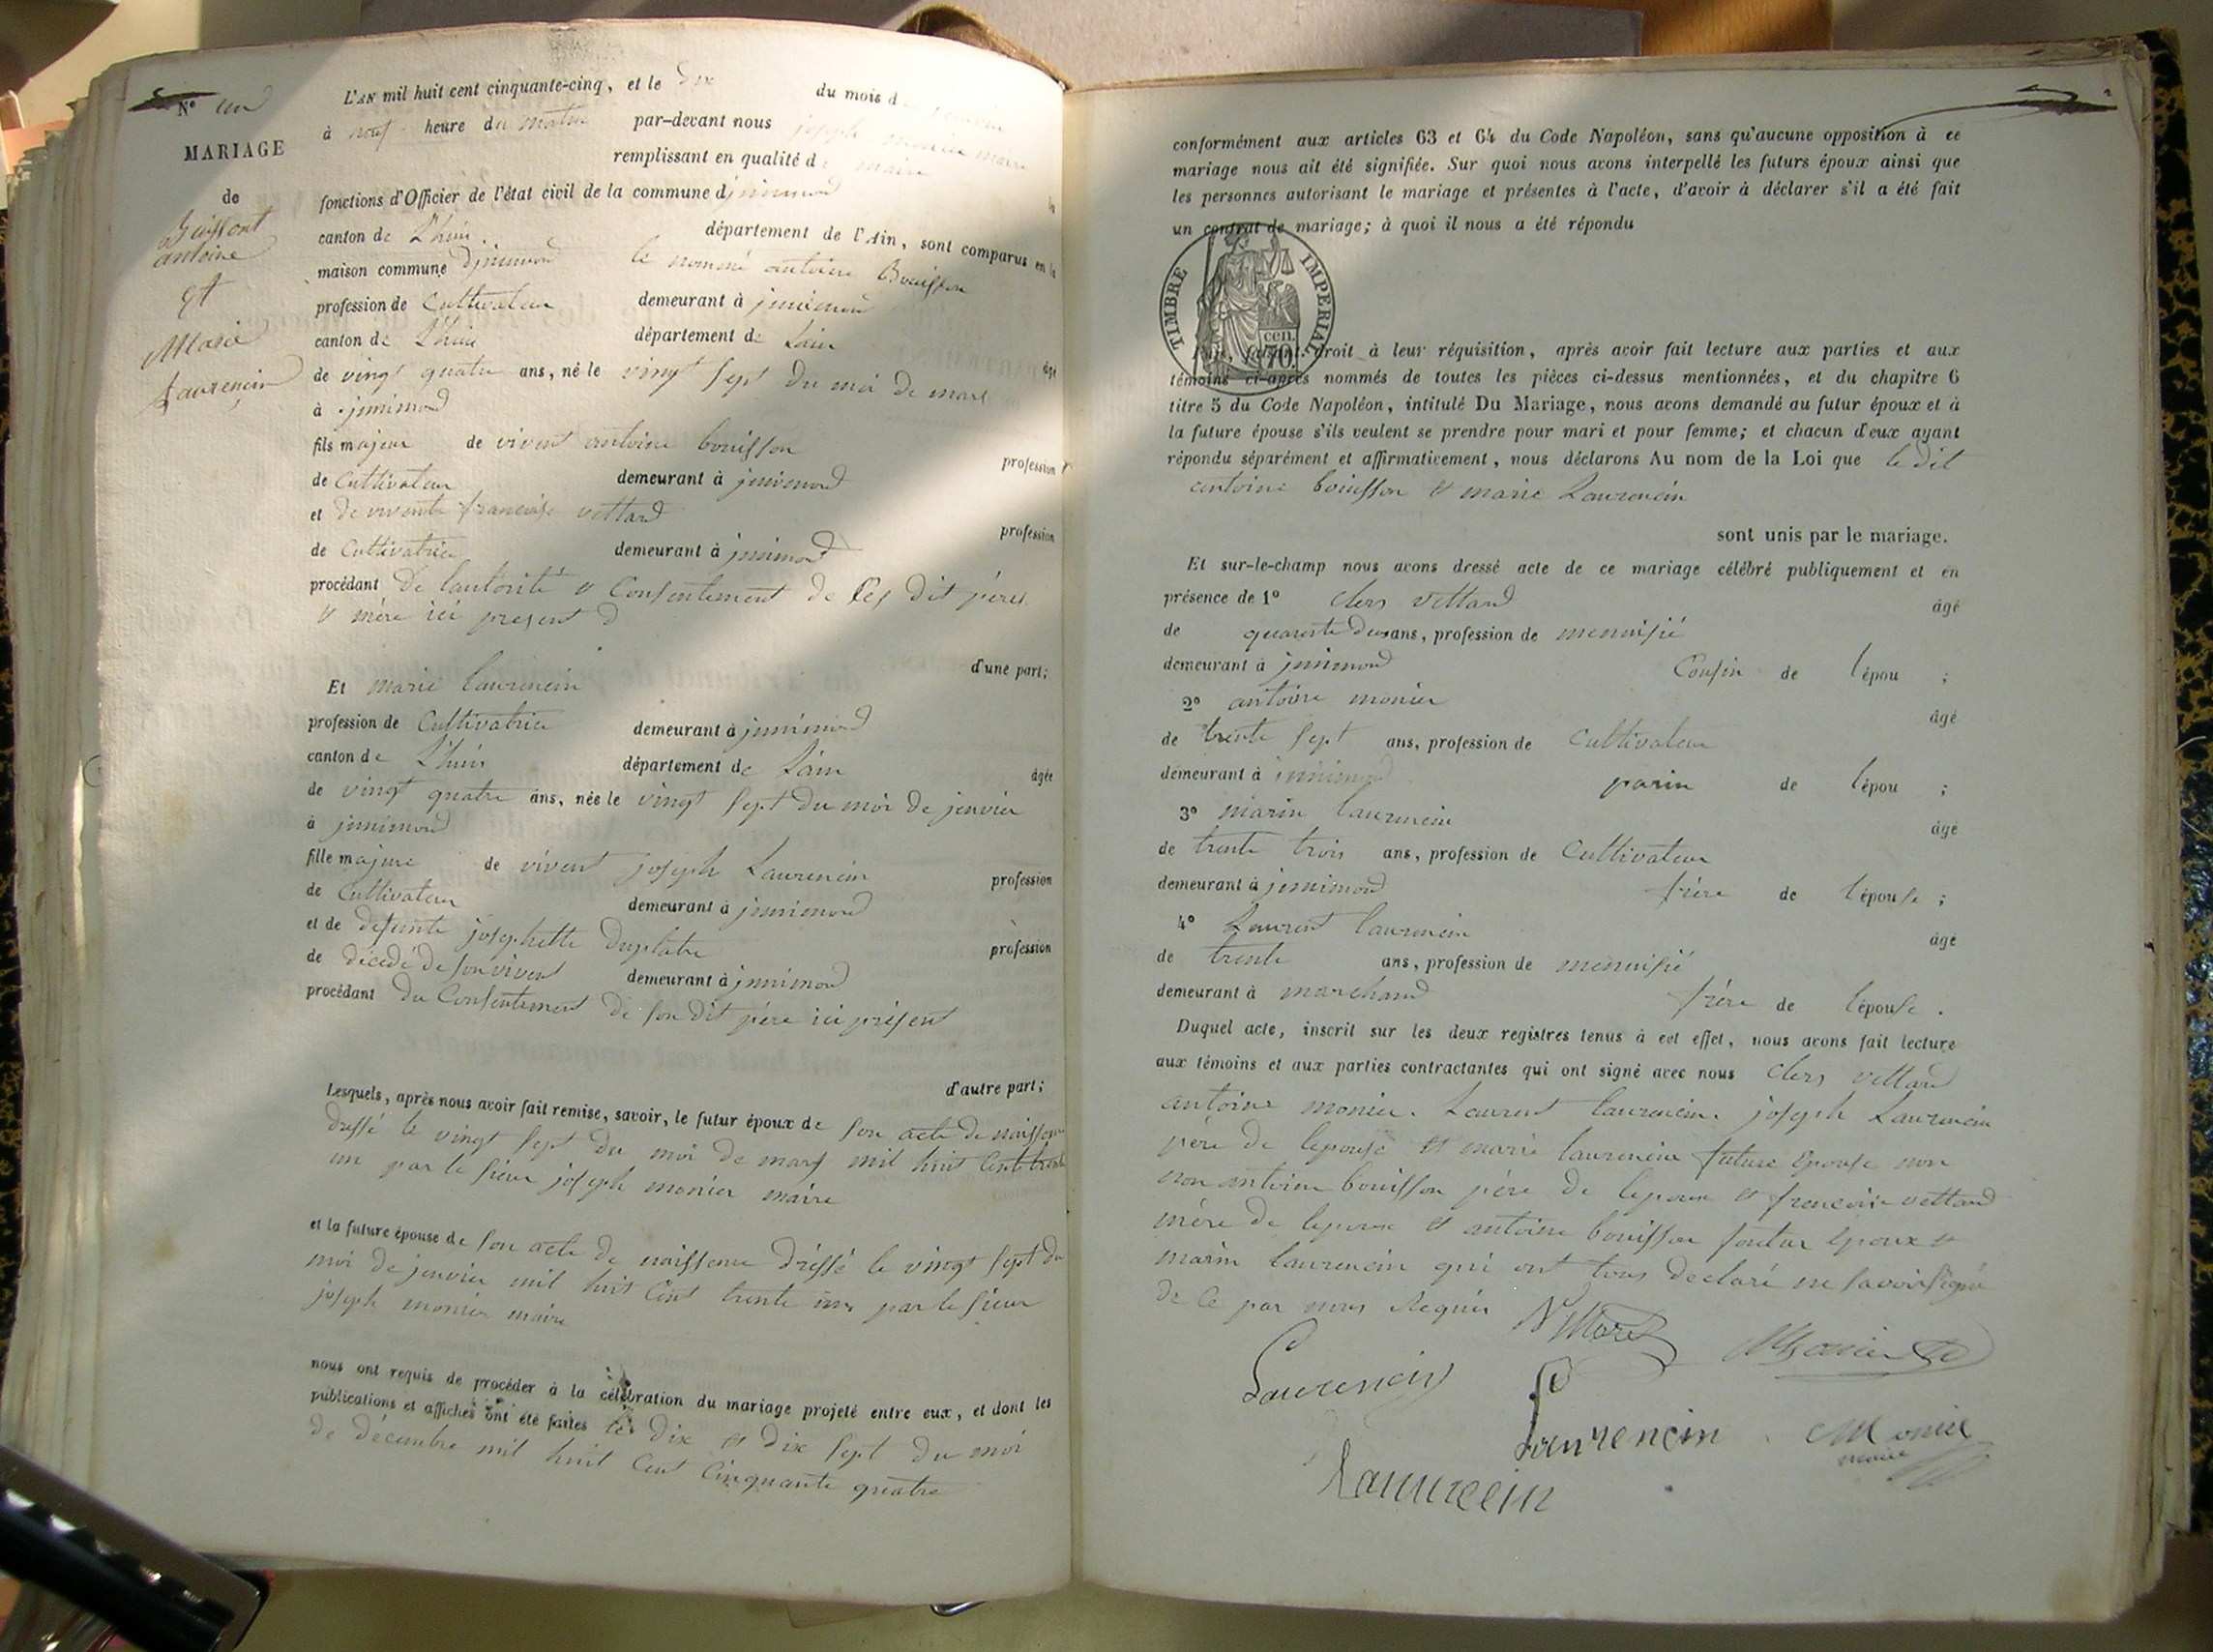 N° un
MARIAGE
de
Buisson
antoine
et
Marie
Laurencin
L'AN mil huit cent cinquante-cinq, et le dix du mois d
à neuf heure du matin par-devant nous joseph monier maire
remplissant en qualité de maire
fonctions d'Officier de l'état civil de la commune d jnnimond
canton de Lhuis département de l'Ain, sont comparus en la
maison commune D jnnimond le nommé antoine Bouisson
profession de Cultivateur demeurant à jnnimond
canton de Lhuis département de Lain âgé
de vingt quatre ans, né le vingt sept du moi de mars
à jnnimond
fils majeur de vivent antoine bouisson profession
de Cultivateur demeurant à jnnimond
et de vivente francoise vettard profession
de Cultivatrice demeurant à jnnimond
procédant De lautorité et Consentement de ses dit pères
et mère ici present d'une part;
Et marie laurencin
profession de Cultivatrice demeurant à jnnimond
canton de Lhuis département de Lain âgée
de vingt quatre ans, née le vingt sept du moi de jenvier
à jnnimond
fille majure de vivent joseph Laurencin profession
de Cultivateur demeurant à jnnimond
et de defeinte josephette Duplatre profession
de décédé de son vivent demeurant à jnnimond
procédant du Consentement de son dit père ici présent
d'autre part;
Lesquels, après nous avoir fait remise, savoir, le futur époux de son acte de naissance
dressé le vingt sept du moi de mars mil huit Cent trente
un par le sieur joseph monier maire
et la future épouse de son acte de naissence dressé le vingt sept du
moi de jenvier mil huit Cent trente un par le sieur
joseph monier maire
nous ont requis de procéder à la célébration du mariage projeté entre eux, et dont les
publications et affiches ont été faites les dix et dix sept du moi
de décembre mil huit Cent Cinquante quatre
conformément aux articles 63 et 64 du Code Napoléon, sans qu'aucune opposition à ce
mariage nous ait été signifiée. Sur quoi nous avons interpellé les futurs époux ainsi que
les personnes autorisant le mariage et présentes à l'acte, d'avoir à déclarer s'il a été fait
un contrat de mariage; à quoi il nous a été répondu
TIMBRE IMPERIAL
cen. 70.
droit à leur réquisition, après avoir fait lecture aux parties et aux
témoins ci-après nommés de toutes les pièces ci-dessus mentionnées, et du chapitre 6
titre 5 du Code Napoléon, intitulé Du Mariage, nous avons demandé au futur époux et à
la future épouse s'ils veulent se prendre pour mari et pour femme; et chacun d'eux ayant
répondu séparément et affirmativement, nous déclarons Au nom de la Loi que le dit
antoine bouisson et marie Laurencin
sont unis par le mariage.
Et sur-le-champ nous avons dressé acte de ce mariage célébré publiquement et en
présence de 1° Clers vettard âgé
de quarente deux ans, profession de menuisié
demeurant à jnnimond Cousin de lépou ;
2° antoine monier âgé
de trente sept ans, profession de Cultivateur
demeurant à jnnimond parin de lépou ;
3° marin laurencin âgé
de trente trois ans, profession de Cultivateur
demeurant à jnnimond frère de lépouse ;
4° Laurent laurencin âgé
de trente ans, profession de menuisié
demeurant à marchand frère de lépouse .
Duquel acte, inscrit sur les deux registres tenus à cet effet, nous avons fait lecture
aux témoins et aux parties contractantes qui ont signé avec nous Clers vettard
antoine monier. Laurent laurencin. joseph Laurencin
père de lepouse et marie laurencin future épouse non
non antoine bouisson père de lepoux et francoise vettard
mère de lepoux et antoine bouisson foutur epoux et
marin laurencin qui ont tous declaré ne savoir signé
de Ce par nous Requis
Vettard
Monier
Laurencin
Laurencin
Monier
maire
Laurencin